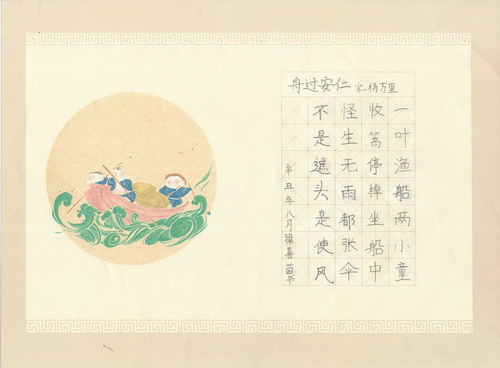 舟过安仁 宋 杨万里
一叶渔船两小童
收篙停棹坐船中
怪生无雨都张伞
不是遮头是使风
辛丑年八月 善 书